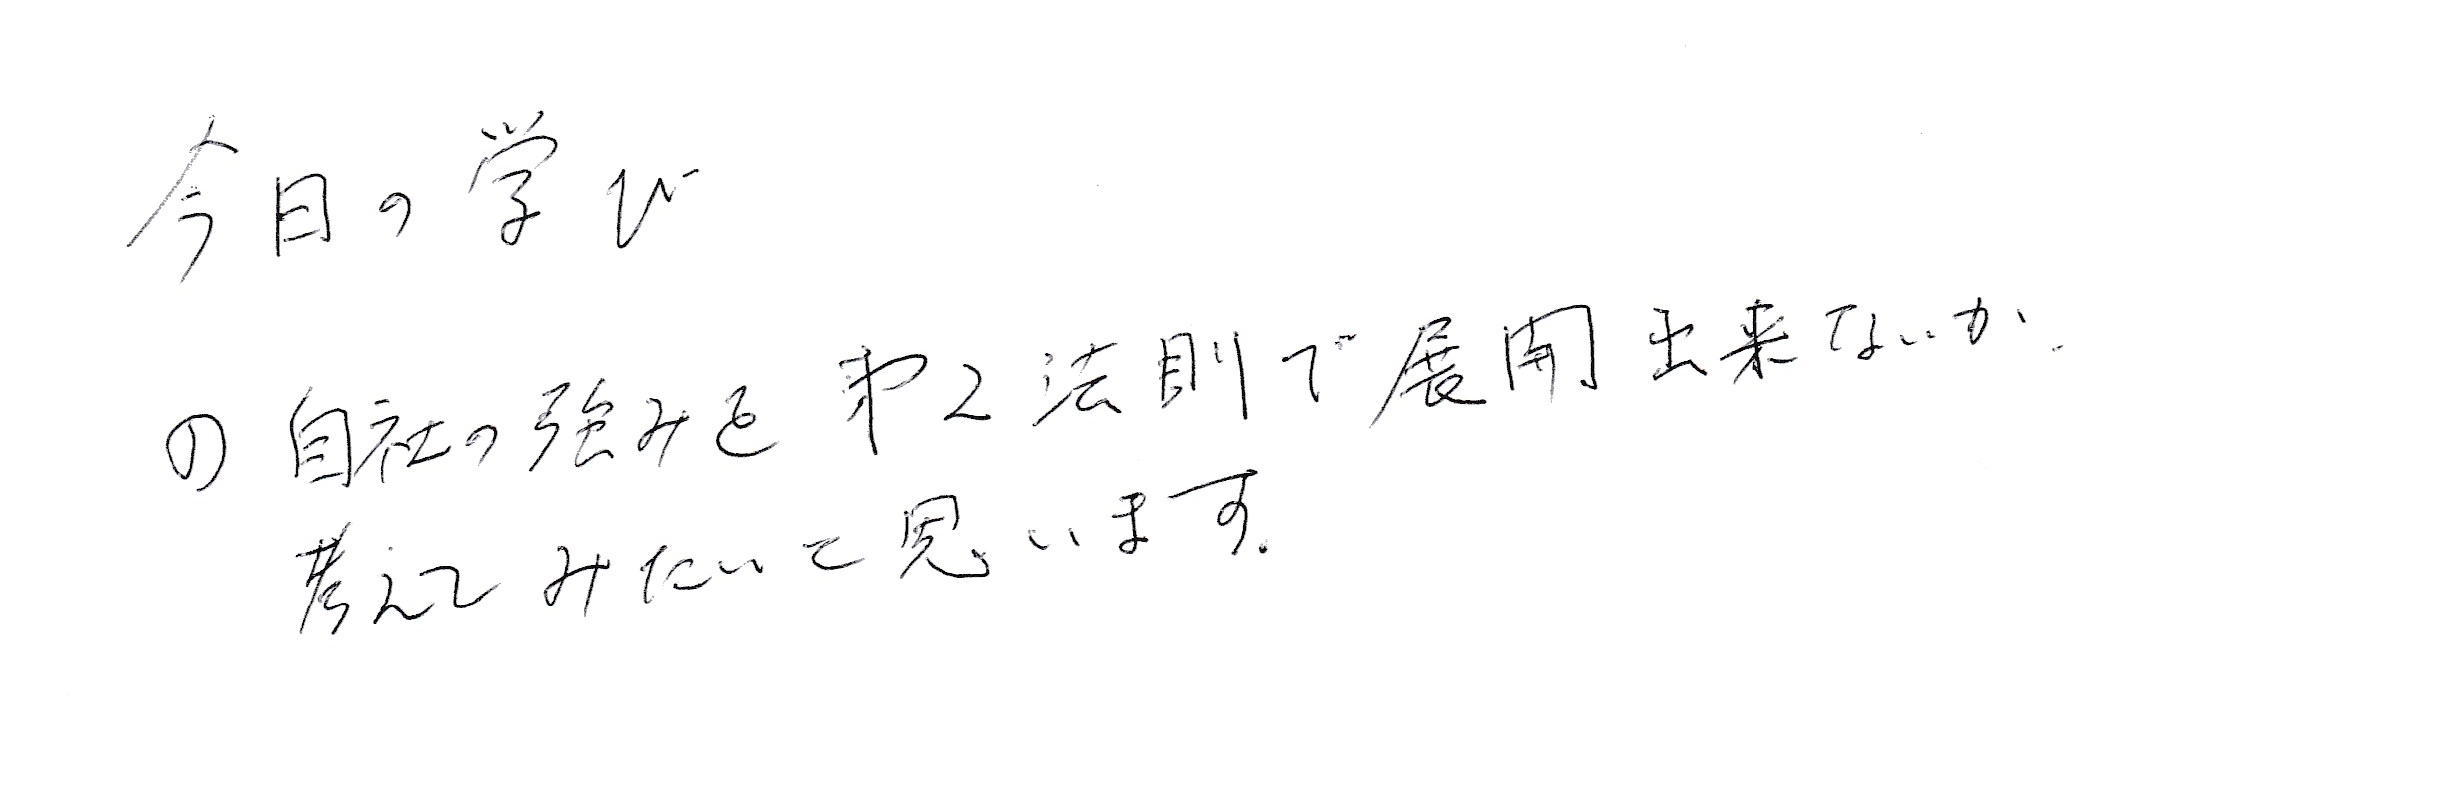 今日の学び
① 自社の強みを 第2法則で展開出来ないか.
考えてみたいと思います.